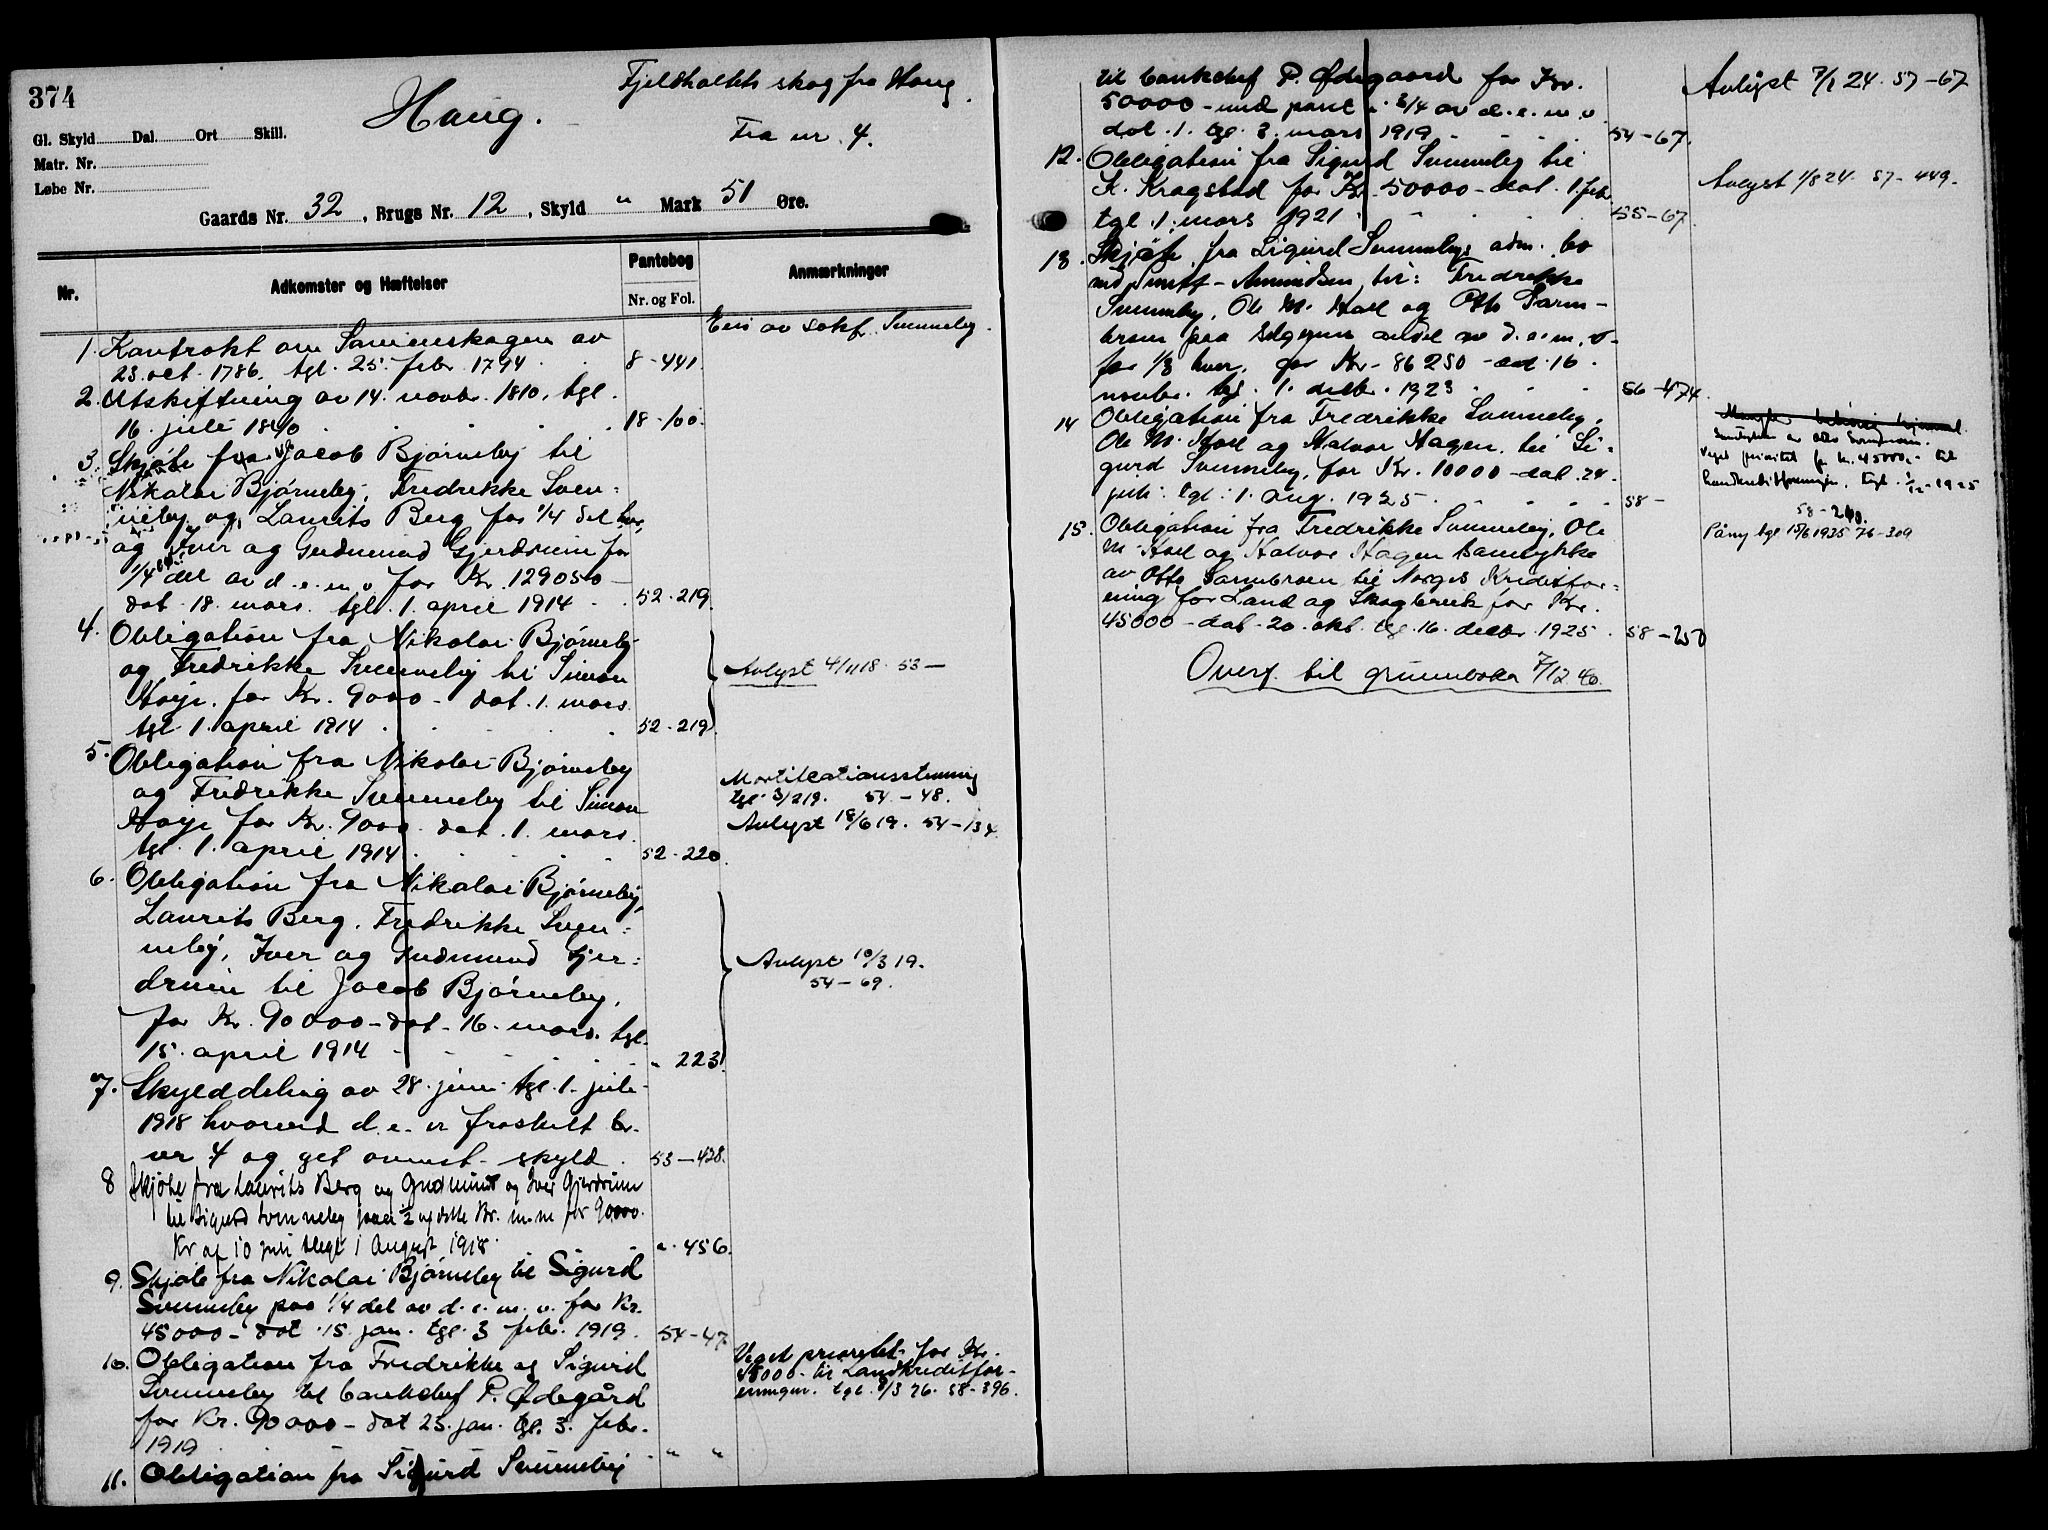 374
Haug.
Fjeldholtets skog fra Haug
Fra nr. 4.
Gl. Skyld Dal. Ort Skill.
Matr. Nr.
Løbe Nr.
Gaards Nr. 32, Brugs Nr. 12, Skyld " Mark 51 Øre.
Nr.
Adkomster og Hæftelser
Pantebog
Nr. og Fol.
Anmærkninger
Eies av
Svenneby.
1. Kontrakt om Sameieskogen av
23. oct. 1786. tgl. 25. febr. 1794. 8-441.
2. Utskiftning av 14. novbr. 1810, tgl.
16. juli 1840 18-100.
3. Skjøte fra Jacob Bjørneby til
Nikolai Bjørneby, Fredrikke Sven-
neby og Laurits Berg for 1/4 del hver
og Iver og Gudmund Gjerdrum for
1/4 del av d.e.m.v for Kr. 129050-
dat. 18. mars. tgl. 1. april 1914 52-219.
4. Obligation fra Nikolai Bjørneby
og Fredrikke Svenneby til Simon
Høye. for Kr. 9000- dat. 1. mars.
tgl. 1. april 1914 52-219.
Avlyst 4/1118. 53-
5. Obligation fra Nikolai Bjørneby
og Fredrikke Svenneby til Simon
Høye for Kr. 9000- dat. 1. mars.
tgl. 1. april 1914 52-220.
Mortifcationsstevning
tgl. 3/219. 54-48.
Avlyst 18/619. 54-134.
6. Obligation fra Nikolai Bjørneby,
Laurits Berg. Fredrikke Sven-
neby, Iver og Gudmund Gjer-
drum til Jacob Bjørneby.
for Kr. 90000- dat. 16. mars. tgl.
15. april 1914 - " 223.
Avlyst 10/319.
54-69.
7. Skylddeling av 28. juni tgl. 1. juli
1918 hvorved d.e. er fraskilt br.
nr 4 og git ovennt. skyld. 53-438.
8 Skjøte fra Laurits Berg og Gudmund og Iver Gjerdrum
til Sigurd Svenneby paa 1/2 af dette Br. m.m for 90000.
Kr af 10 juli tlegt 1 August 1918. " 456.
9. Skjøte fra Nikolai Bjørneby til Sigurd
Svenneby paa 1/4 del av d.e.m.v. for Kr.
45000- dat. 15. jan. tgl. 3 febr. 1919. 54-47.
10. Obligation fra Fredrikke og Sigurd
Svenneby til bankchef P. Ødegård
for Kr. 90000- dat 25. jan. tgl. 3. febr.
1919 " "
Veget prioritet for Kr.
45000- til Landkreditfor-
eningen. tgl. 1/3 26. 58-396.
11. Obligation fra Sigurd Svenneby
til bankchef P. Ødegaard for Kr.
50000- med pant i 3/4 av d.e.m.v
dat. 1. tgl. 3. mars 1919 54-67.
Avlyst 7/1 24. 57-67
12. Obligation fra Sigurd Svenneby til
K. Kragstad for Kr. 50000- dat. 1. febr
tgl. 1. mars 1921 55-67.
Avlyst 1/824. 57-449.
13. Skjøte fra Sigurd Svennebys adm. bo
ved Amundsen til: Fredrikke
Svenneby, Ole M. Hoel og Otto Sarm-
broen paa andel av d.e.m.v.
for 1/3 hver. for Kr. 86250- dat. 16.
novbr. tgl. 1. decbr. 1923 56-474.
14 Obligation fra Fredrikke Svenneby,
Ole M. Hoel og Halvor Hagen til Si-
gurd Svenneby, for Kr. 10000- dat. 24.
juli. tgl. 1. aug. 1925. 58-
Mangler
hjemmel.
Samtykke av Otto
Veget prioritet for kr. 45000,- til
Landkreditforeningen, tgl. 1/12-1925
58-240.
Påny tgl 15/6 1935 76-309
15. Obligation fra Fredrikke Svenneby, Ole
M. Hoel og Halvor Hagen samtykke
av Otto Sarmbroen til Norges Kreditfor-
ening for Land og Skogbruk for Kr.
45000- dat. 20. okt. tgl. 16. decbr. 1925. 58-250
Overf. til grunnboka 7/12.40.